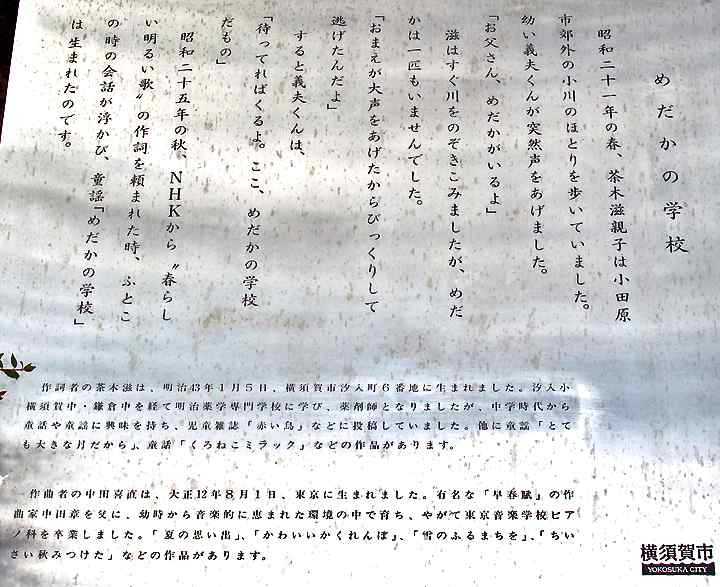 めだかの学校
昭和二十一年の春、茶木滋親子は小田原
市郊外の小川のほとりを歩いていました。
幼い義夫くんが突然声をあげました。
「お父さん、めだかがいるよ」
滋はすぐ川をのぞきこみましたが、めだ
かは一匹もいませんでした。
「おまえが大声をあげたからびっくりして
逃げたんだよ」
すると義夫くんは、
「待ってればくるよ。ここ、めだかの学校
だもの」
昭和二十五年の秋、NHKから〝春らし
い明るい歌〟の作詞を頼まれた時、ふとこ
の時の会話が浮かび、童謡「めだかの学校」
は生まれたのです。
作詞者の茶木滋は、明治43年1月5日、横須賀市汐入町6番地に生まれました。汐入小
横須賀中・鎌倉中を経て明治薬学専門学校に学び、薬剤師となりましたが、中学時代から
童話や童謡に興味を持ち、児童雑誌「赤い鳥」などに投稿していました。他に童謡「とて
も大きな月だから」、童話「くろねこミラック」などの作品があります。
作曲者の中田喜直は、大正12年8月1日、東京に生まれました。有名な「早春賦」の作
曲家中田章を父に、幼時から音楽的に恵まれた環境の中で育ち、やがて東京音楽学校ピア
ノ科を卒業しました。「夏の思い出」、「かわいいかくれんぼ」、「雪のふるまちを」、「ちい
さい秋みつけた」などの作品があります。
横須賀市
YOKOSUKA CITY